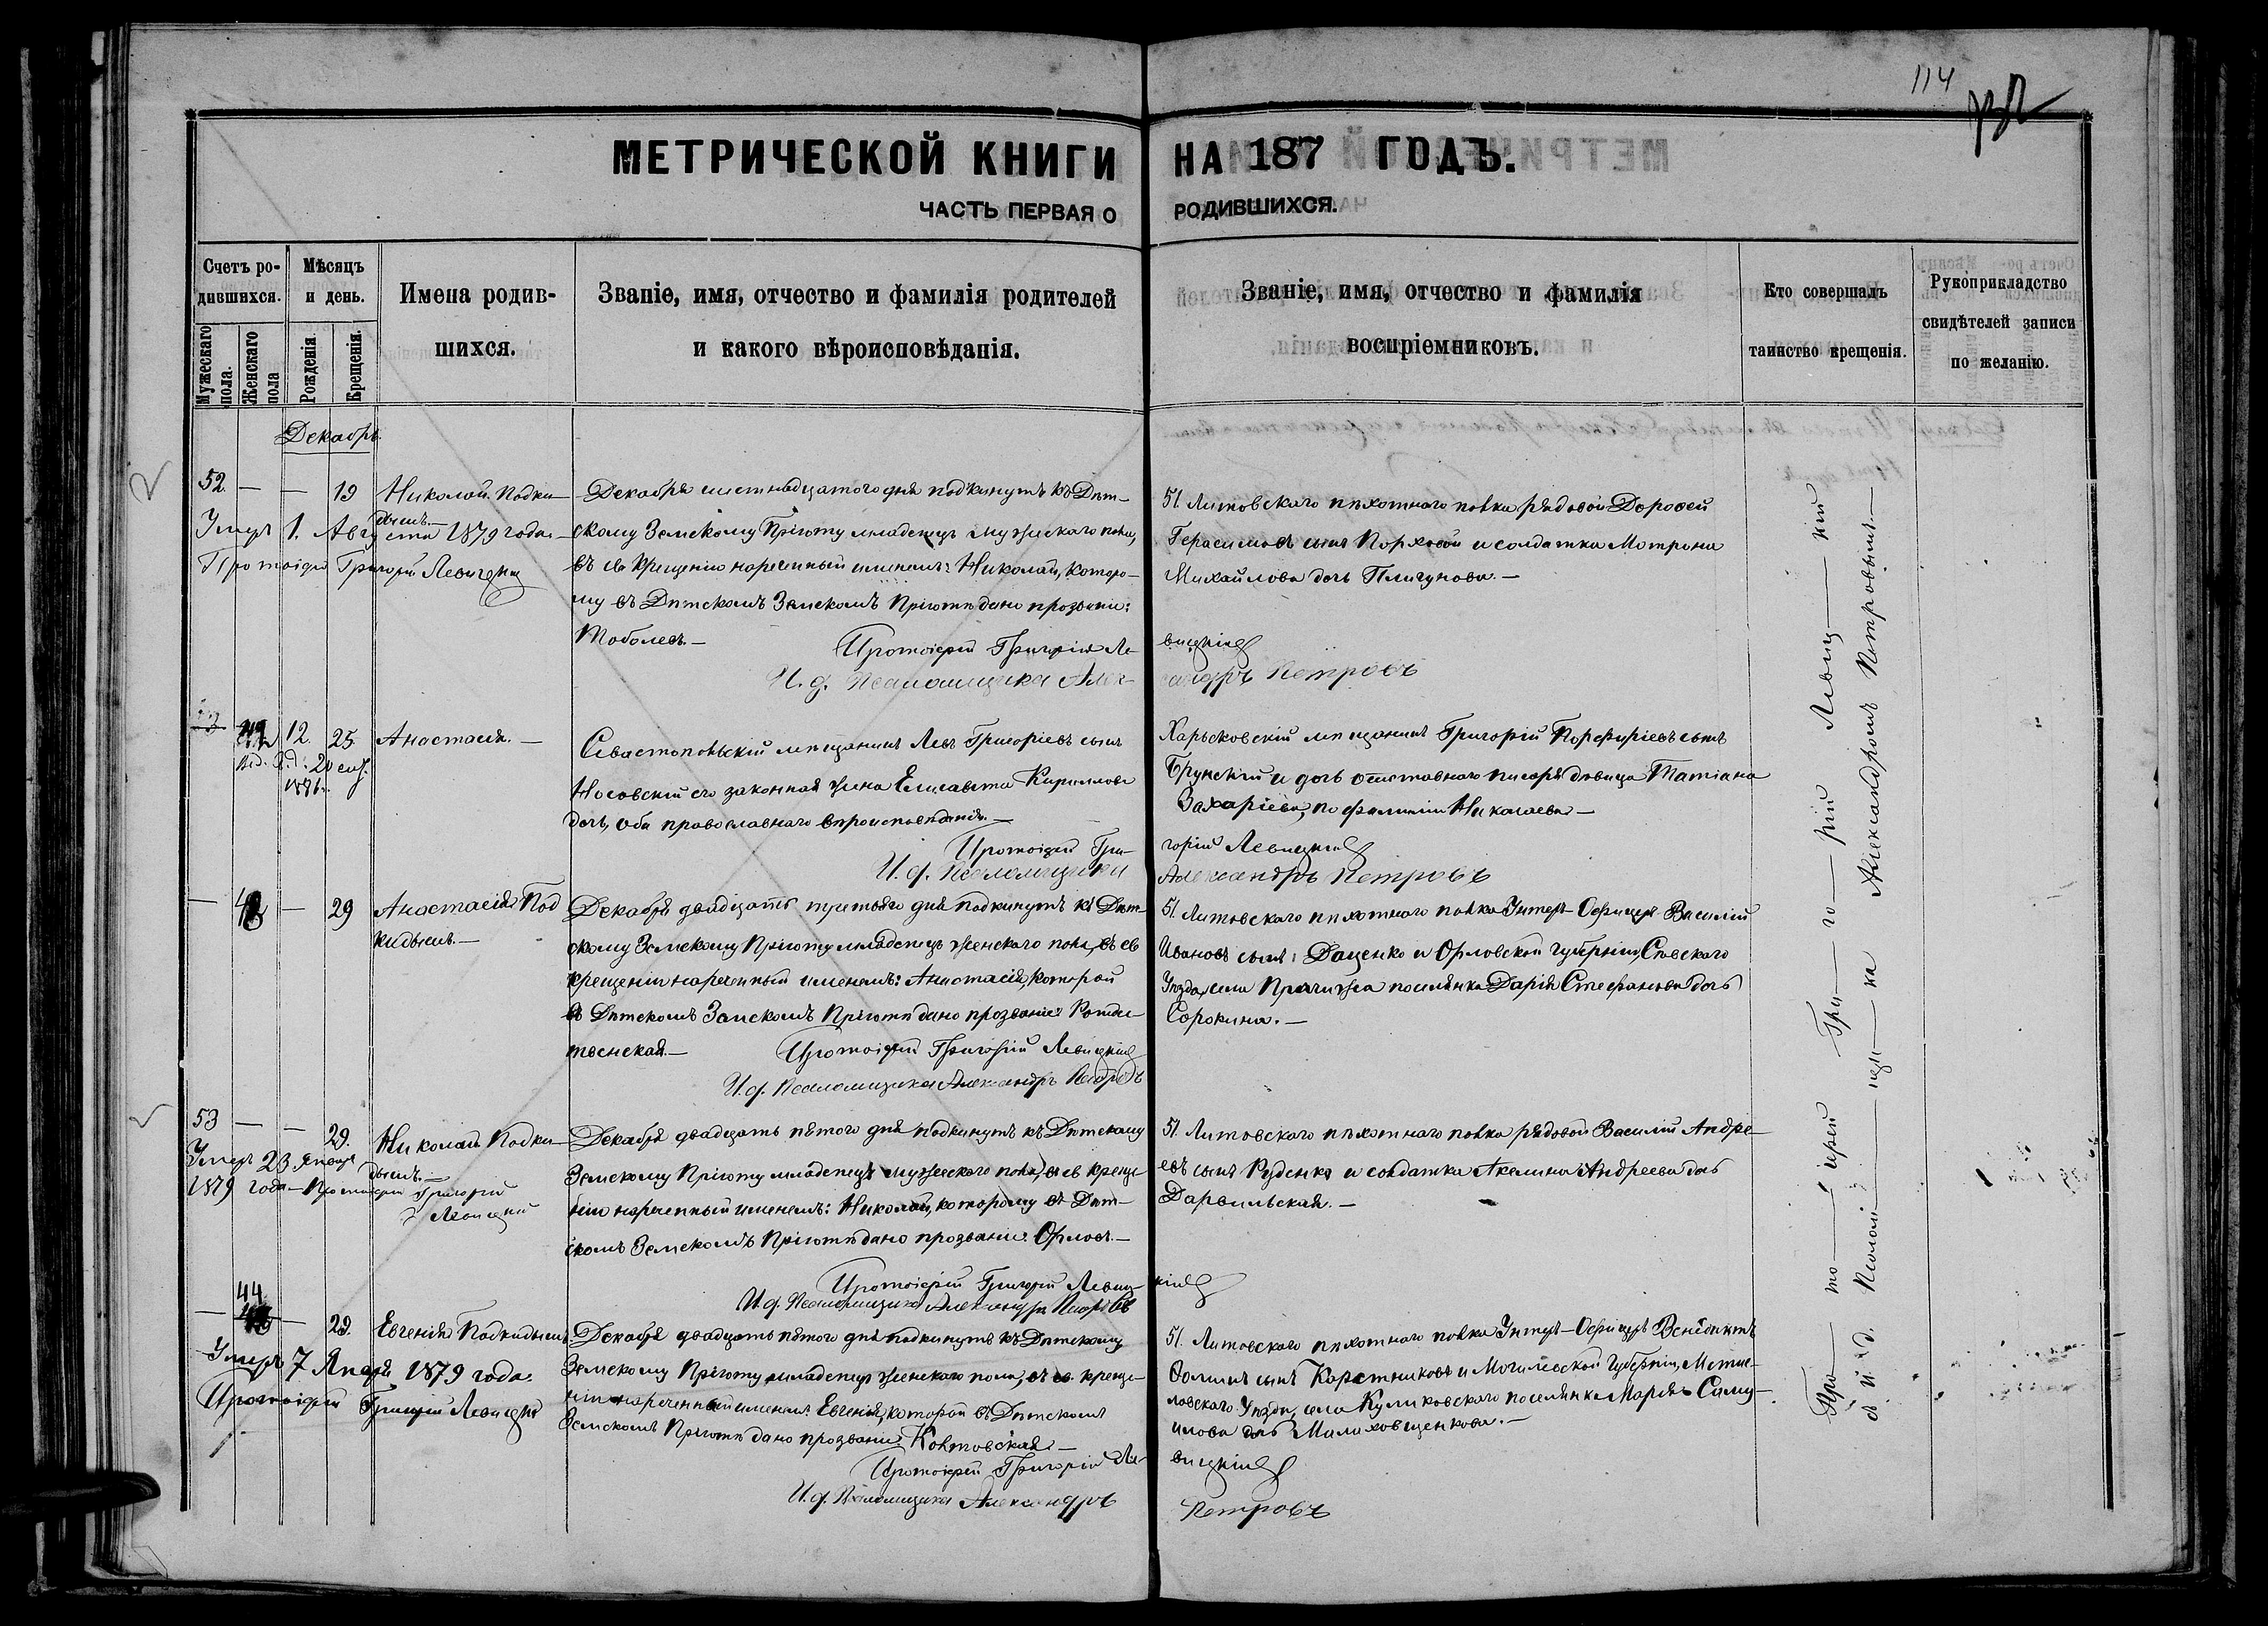 114
МЕТРИЧЕСКОЙ КНИГИ НА 187 ГОДЪ.
ЧАСТЬ ПЕРВАЯ О РОДИВШИХСЯ.
Счетъ родившихся.
Мужескаго пола.
Женскаго пола
Мѣсяцъ и день.
Рожденія.
Крещенія.
Имена родив-
шихся.
Званіе, имя, отчество и фамилія родителей
и какого вѣроисповѣданія.
Званіе, имя, отчество и фамилія
воспріемниковъ.
Кто совершалъ
таинство крещенія.
Рукоприкладство
свидѣтелей записи
по желанію.
Декабрь
52 — — 19 Николай Подки-
дышъ.—
Умеръ 1. Августа 1879 года.—
Протоіерей Григорій Левицкій
Декабря шестнадцатого дня подкинутъ къ Дѣт-
скому Земскому Пріюту младенецъ мужескаго пола,
въ св. крещеніи нареченный именемъ: Николай, которо-
му въ Дѣтскомъ Земскомъ Пріютѣ дано прозваніе:
Тоболевъ.—
Протоіерей Григорій Левицкій
И. д. Псаломщика Александръ Петровъ
51 Литовскаго пѣхотнаго полка рядовой Дорофей
Герасимовъ сынъ и солдатка Мотрона
Михайлова дочь Плигунова.—
12. 25 Анастасія.—
20
Севастопольскій мѣщанинъ Левъ Григоріевъ сынъ
Носовскій его законная жена Елисавета Кириллова
дочь, оба православнаго вѣроисповѣданія.—
Протоіерей Григорій Левицкій
И. д. Псаломщика Александръ Петровъ
Харьковскій мѣщанинъ Григорій Порфиріевъ сынъ
Брунскій и дочь отставнаго писаря дѣвица Татіана
Захаріева, по фамиліи Николаева—
— — 29 Анастасія Под
кидышъ.—
Декабря двадцать третьяго дня подкинутъ къ Дѣт-
скому Земскому Пріюту младенецъ женскаго пола, въ св
крещеніи нареченный именемъ: Анастасія, которой
въ Дѣтскомъ Земскомъ Пріютѣ дано прозваніе Рожде-
ственская.—
Протоіерей Григорій Левицкій
И. д. Псаломщика Александръ Петровъ
51. Литовскаго пѣхотнаго полка Унтеръ-Офицеръ Василій
Ивановъ сынъ: Даценко и Орловской Губерніи, Сѣвскаго
Уѣзда, села поселянка Дарія Стефанова дочь
Сорокина.—
53 — — 29. Николай Подки-
дышъ.—
Умеръ 23 Января
1879 года.— Протоіерей Григорій
Левицкій
Декабря двадцать пятого дня подкинутъ къ Дѣтскому
Земскому Пріюту младенецъ мужескаго пола, въ св креще-
ніи нареченный именемъ: Николай, которому въ Дѣт-
скомъ Земскомъ Пріютѣ дано прозваніе Орловъ.—
Протоіерей Григорій Левицкій
И. д. Псаломщика Александръ Петровъ
51. Литовскаго пѣхотнаго полка рядовой Василій Андре-
евъ сынъ Руденко и солдатка Акелина Андреева дочь
Дарвильская.—
44
— — 29. Евгенія Подкидышъ.
Умеръ 7 Января 1879 года.
Протоіерей Григорій Левицкій
Декабря двадцать пятого дня подкинутъ къ Дѣтскому
Земскому Пріюту младенецъ женскаго пола, въ св. креще-
ніи нареченный именемъ: Евгенія, которой въ Дѣтскомъ
Земскомъ Пріютѣ дано прозваніе Колтовская.—
Протоіерей Григорій Левицкій
И. д. Псаломщика Александръ Петровъ
51. Литовскаго пѣхотнаго полка Унтеръ-Офицеръ Венедиктъ
Фоминъ сынъ Коротниковъ и Могилевской Губерніи, Мстис-
лавскаго Уѣзда, села Куликовскаго поселянка Марія Саму-
илова дочь Милиховщенкова.—
Про— то— іерей Гри— го— рій Левиц— кій
съ И. д. Псалом— щи— ка Александромъ Петровымъ.—